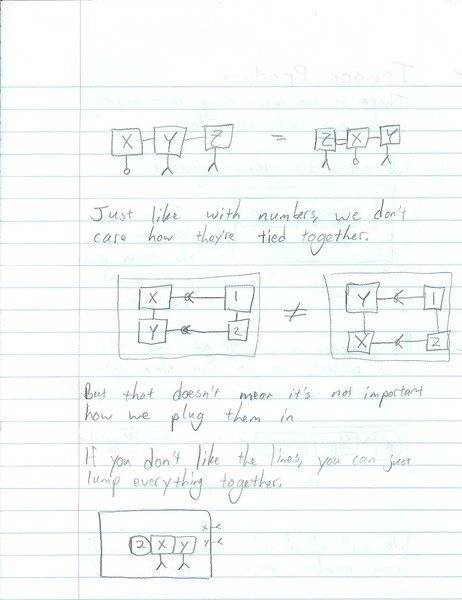 X Y Z = Z X Y
Just like with numbers, we don't
care how they're tied together.
X 1 ≠ Y 1
Y 2 X 2
But that doesn't mean it's not important
how we plug them in
If you don't like the lines, you can just
lump everything together.
X
2 X Y Y